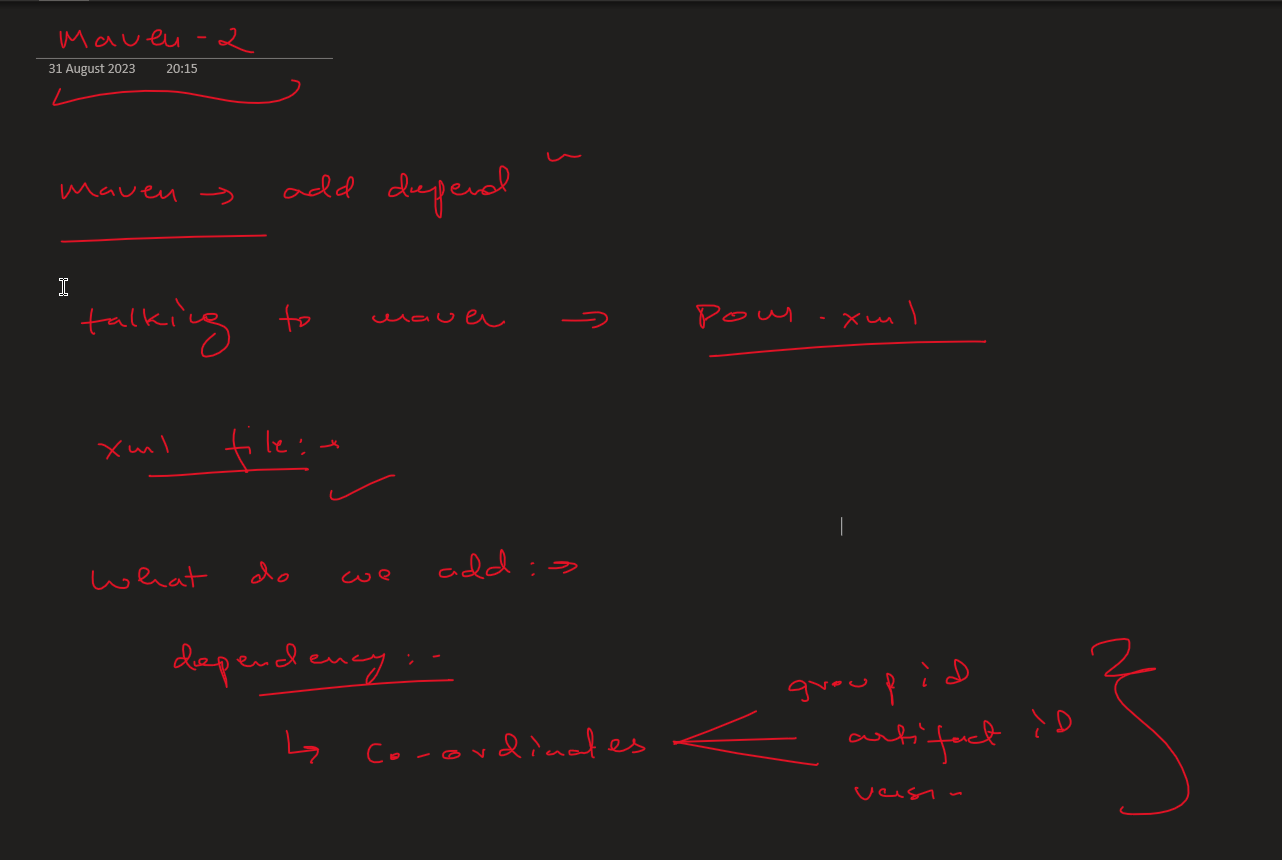 Maven - 2
31 August 2023 20:15
Maven → add depend
talking to maven ⇒ Pom.xml
xml file :→
What do we add :⇒
dependency :-
↳ Co-ordinates
group iD
artifact iD
versi-